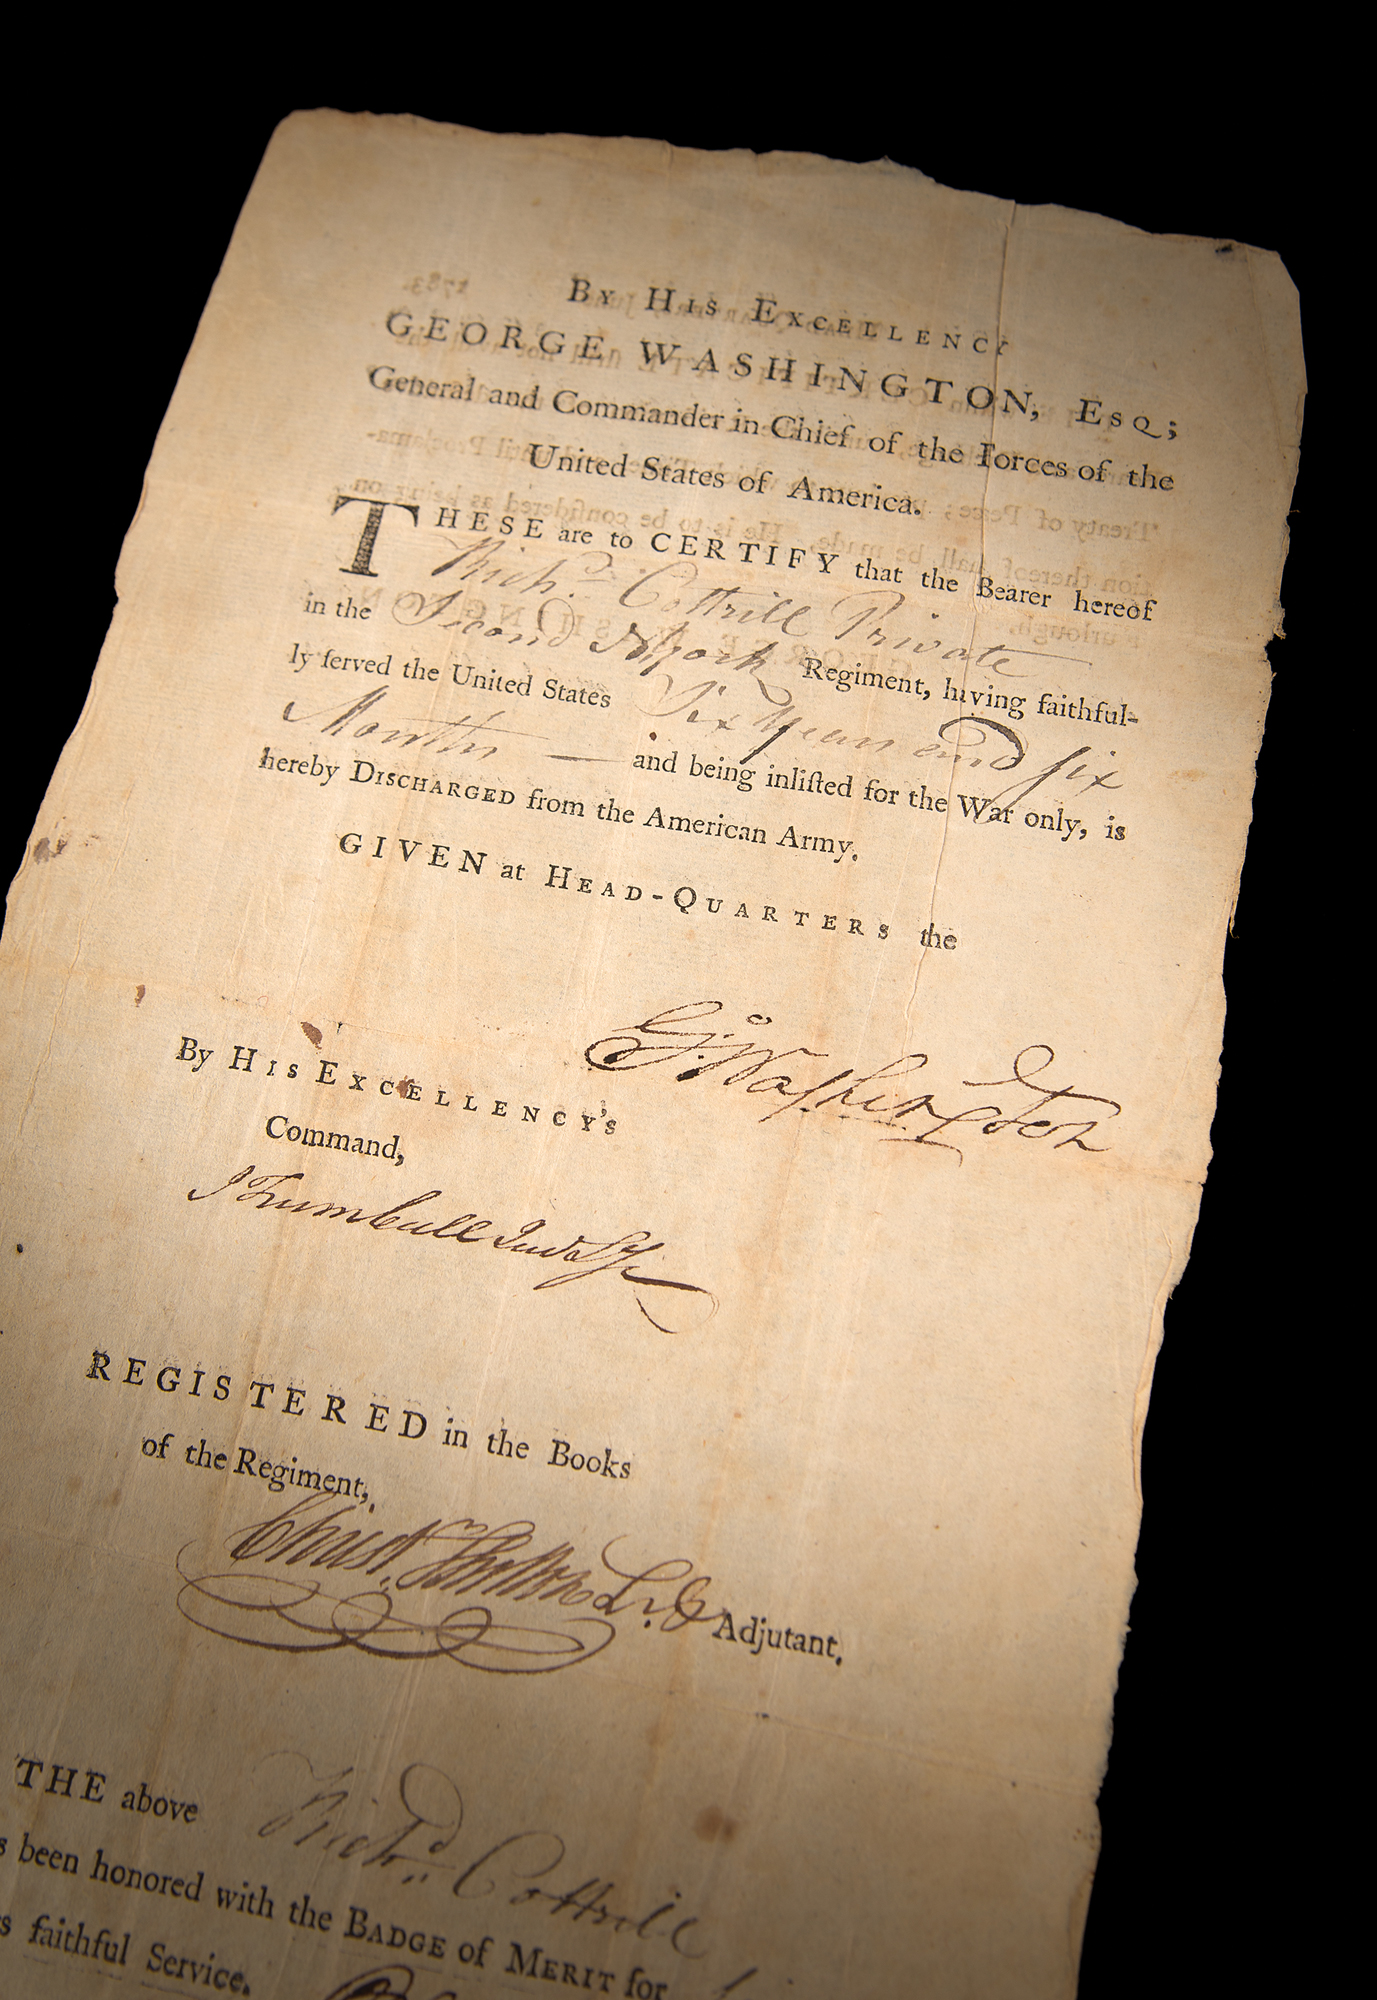 By His Excellency
GEORGE WASHINGTON, Esq;
General and Commander in Chief of the Forces of the
United States of America.
THESE are to CERTIFY that the Bearer hereof
Richd. Cottrill Private
in the Second NYork Regiment, having faithful-
ly ſerved the United States Six Years and Six
Months — and being inliſted for the War only, is
hereby DISCHARGED from the American Army.
GIVEN at HEAD-QUARTERS the
Go. Washington
By HIS EXCELLENCY'S
Command,
J Trumbull Jun Sy
REGISTERED in the Books
of the Regiment,
Christ. Lt. & Adjutant.
THE above Richd. Cottrill
been honored with the BADGE of MERIT for
faithful Service.